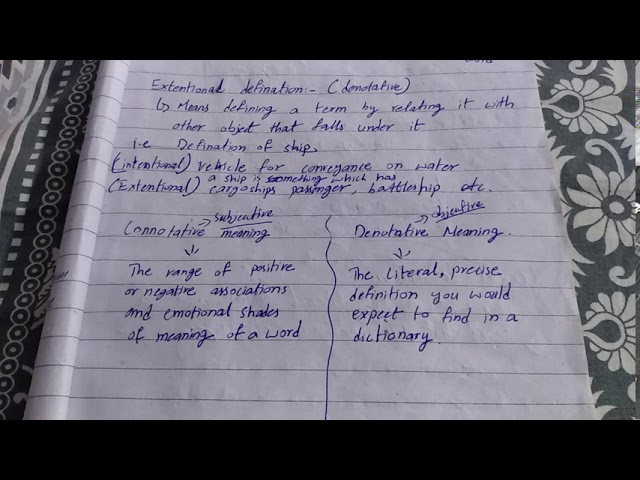 word
Extentional defination:- (denotative)
↳ Means defining a term by relating it with
other object that falls under it
i.e Defination of ship.
(intentional) vehicle for conveyance on water
a ship is something which has
(Extentional) cargoships passenger, battleship etc.
→ subjective
Connotative meaning
The range of positive
or negative associations
and emotional shades
of meaning of a word
→ objective
Denotative Meaning.
The literal, precise
definition you would
expect to find in a
dictionary.